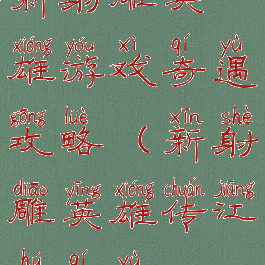 新射雕英
xióng yóu xì qí yù
雄游戏奇遇
gōng lüè xīn shè
攻略（新射
diāo yīng xióng chuán jiāng
雕英雄传江
hú qí yù